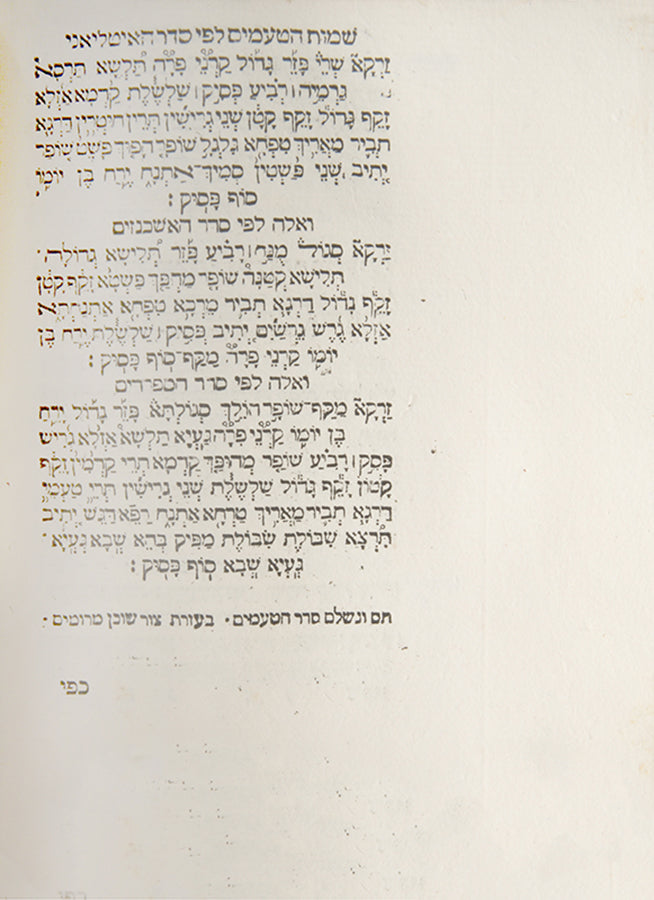 שמות הטעמים לפי סדר האיטליאני
זַרְקָא שְׁרֵי פָּזֵר גָּדוֹל קַרְנֵי פָּרָה תַּלְשָׁא תִּרְסָא
גַרְמֵיהּ׀ רְבִיעַ פְּסִיק׀ שַׁלְשֶׁלֶת קַדְמָא אַזְלָא
זָקֵף גָּדוֹל זָקֵף קָטָן שְׁנֵי גְרִישִׁין תְּרֵין חוּטְרִין דַּרְגָא
תְּבִיר מַאֲרִיךְ טִפְחָא גַּלְגַּל שׁוֹפָר הָפוּךְ פָּשֵׁט שׁוֹפָר
יְתִיב שְׁנֵי פַּשְׁטִין סָמִיךְ־אַתְנָח יָרֵחַ בֶּן יוֹמוֹ
סוֹף פָּסוּק׃
ואלה לפי סדר האשכנזים
זַרְקָא סְגוֹל מֻנַּח׀ רְבִיעַ פָּזֵר תְּלִישָׁא גְדוֹלָה·
תְּלִישָׁא קְטַנָּה שׁוֹפָר מְהֻפָּךְ פַּשְׁטָא זָקֵף קָטָן
זָקֵף גָּדוֹל דַּרְגָא תְּבִיר מֵרְכָא טִפְחָא אֶתְנַחְתָּא
אַזְלָא גֶּרֶשׁ גֵּרְשַׁיִם יְתִיב פְּסִיק׀ שַׁלְשֶׁלֶת יָרֵחַ בֶּן
יוֹמוֹ קַרְנֵי פָּרָה מַקַּף־סוֹף פָּסוּק׃
ואלה לפי סדר הספרדים
זַרְקָא מַקַּף־שׁוֹפָר הוֹלֵךְ סְגוֹלְתָּא פָּזֵר גָּדוֹל יָרֵחַ
בֶּן יוֹמוֹ קַרְנֵי פָרָה גַּעְיָא תַּלְשָׁא אַזְלָא גְּרִישׁ
פָּסֵק׀ רָבִיעַ שׁוֹפָר מְהוּפָּךְ קַדְמָא תְּרֵי קַדְמִין זָקֵף
קָטוֹן זָקֵף גָּדוֹל שַׁלְשֶׁלֶת שְׁנֵי גְרִישִׁין תְּרֵי טַעֲמֵי
דַּרְגָא תְּבִיר מַאֲרִיךְ טַרְחָא אַתְנָח רָפֵא דָּגֵשׁ יְתִיב
תִּרְצָא שִׁבּוֹלֶת סִבּוֹלֶת מַפִּיק בְּהֵא שְׁבָא גַּעְיָא·
גַּעְיָא שְׁבָא סוֹף פָּסוּק׃
תם ונשלם סדר הטעמים· בעזרת צור שוכן מרומים·
כפי